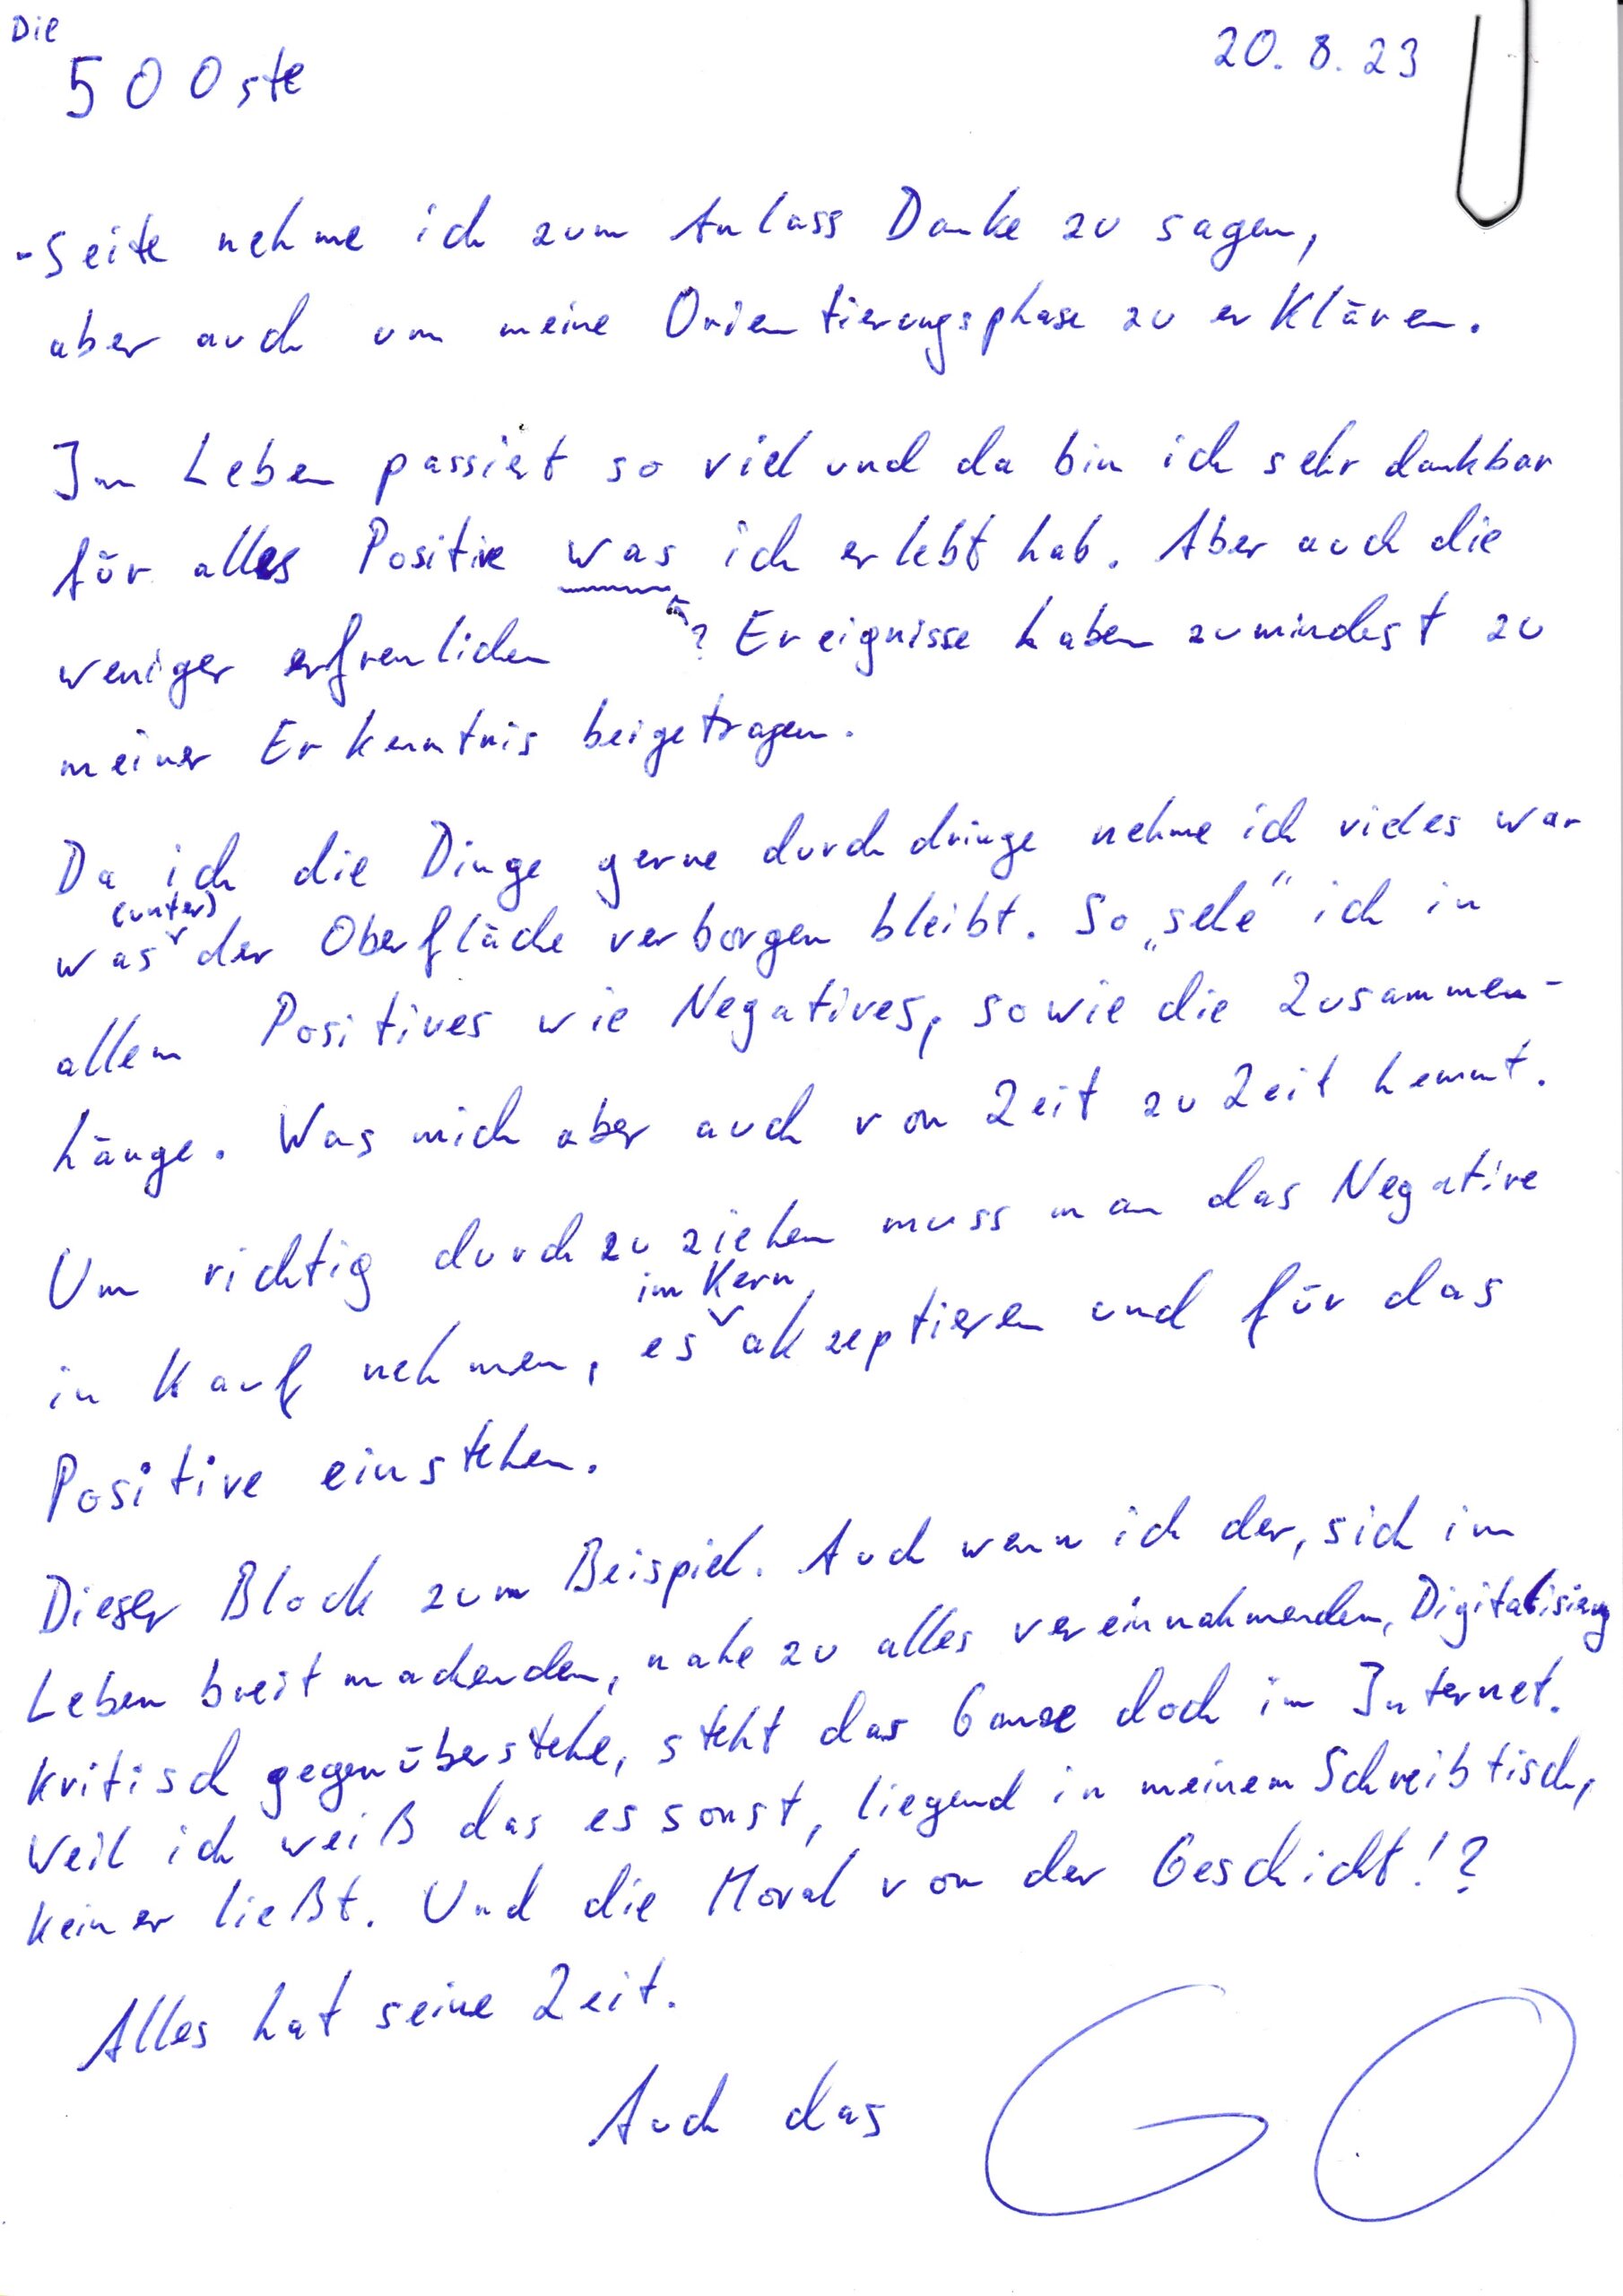 Die
500ste
20.8.23
-Seite nehme ich zum Anlass Danke zu sagen,
aber auch um meine Orientierungsphase zu erklären.
Im Leben passiert so viel und da bin ich sehr dankbar
für alles Positive was ich erlebt hab. Aber auch die
weniger erfreulichen ? Ereignisse haben zumindest zu
meiner Erkenntnis beigetragen.
Da ich die Dinge gerne durchdringe nehme ich vieles war
(unter)
was der Oberfläche verborgen bleibt. So „sehe" ich in
allem Positives wie Negatives, sowie die Zusammen-
hänge. Was mich aber auch von Zeit zu Zeit hemmt.
Um richtig durchzuziehen muss man das Negative
im Kern
in Kauf nehmen, es akzeptieren und für das
Positive einstehen.
Dieser Block zum Beispiel. Auch wenn ich der, sich im
Leben breit machenden, nahe zu alles vereinnahmenden, Digitalisierung
kritisch gegenüberstehe, steht das Ganze doch im Internet.
Weil ich weiß das es sonst, liegend in meinem Schreibtisch,
keiner ließt. Und die Moral von der Geschicht!?
Alles hat seine Zeit.
Auch das GO